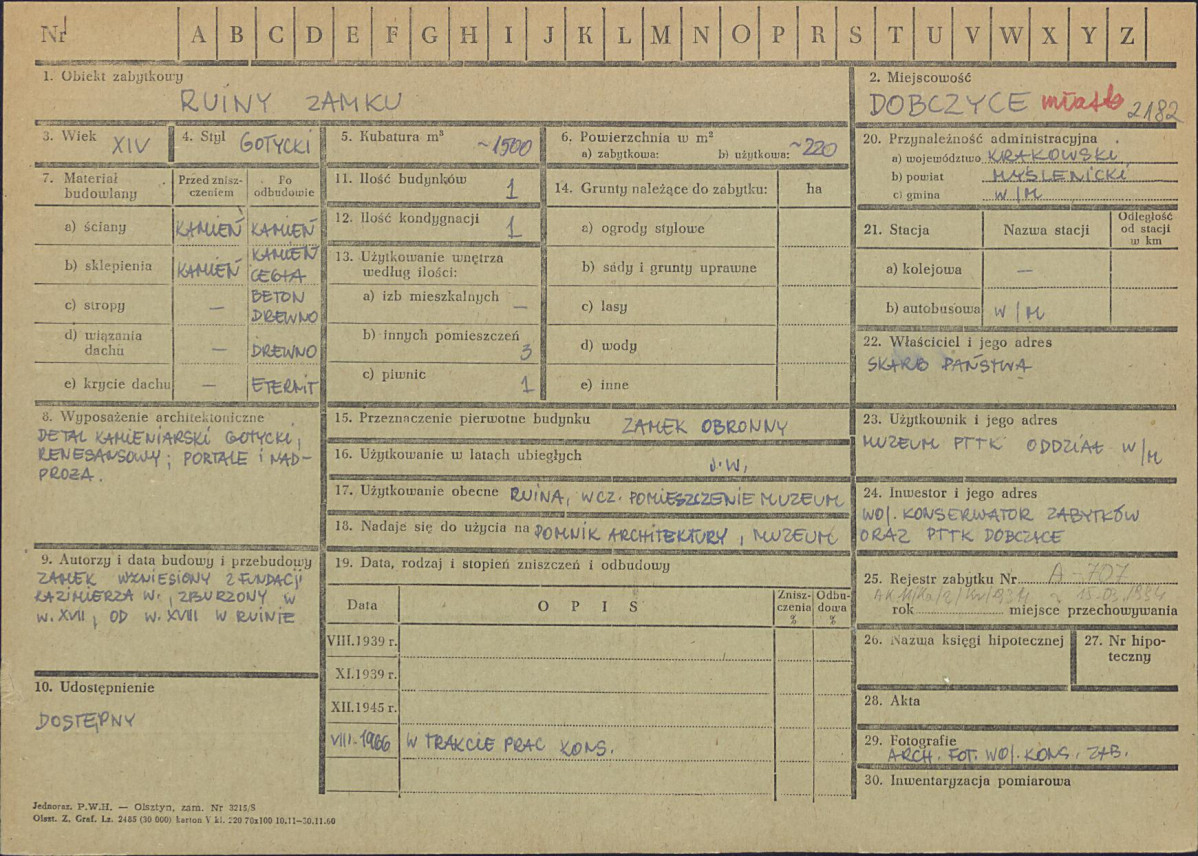 Nr A B C D E F G H I J K L M N O P R S T U V W X Y Z
1. Obiekt zabytkowy
RUINY ZAMKU
2. Miejscowość
DOBCZYCE miasto 2182
3. Wiek XIV
4. Styl GOTYCKI
5. Kubatura m³ ~1500
6. Powierzchnia w m²
a) zabytkowa: b) użytkowa: ~220
7. Materiał budowlany
Przed zniszczeniem
Po odbudowie
a) ściany KAMIEŃ KAMIEŃ
b) sklepienia KAMIEŃ KAMIEŃ CEGŁA
c) stropy — BETON DREWNO
d) wiązania dachu — DREWNO
e) krycie dachu — ETERNIT
8. Wyposażenie architektoniczne
DETAL KAMIENIARSKI GOTYCKI,
RENESANSOWY; PORTALE i NAD-
PROŻA.
9. Autorzy i data budowy i przebudowy
ZAMEK WZNIESIONY Z FUNDACJI
KAZIMIERZA W., ZBURZONY W
W. XVII, OD W. XVIII W RUINIE
10. Udostępnienie
DOSTĘPNY
11. Ilość budynków 1
12. Ilość kondygnacji 1
13. Użytkowanie wnętrza
według ilości:
a) izb mieszkalnych —
b) innych pomieszczeń 3
c) piwnic 1
14. Grunty należące do zabytku: ha
a) ogrody stylowe
b) sady i grunty uprawne
c) lasy
d) wody
e) inne
15. Przeznaczenie pierwotne budynku ZAMEK OBRONNY
16. Użytkowanie w latach ubiegłych J.W.
17. Użytkowanie obecne RUINA, WCZ. POMIESZCZENIE MUZEUM
18. Nadaje się do użycia na POMNIK ARCHITEKTURY, MUZEUM
19. Data, rodzaj i stopień zniszczeń i odbudowy
Data OPIS Zniszczenia % Odbudowa %
VIII.1939 r.
XI.1939 r.
XII.1945 r.
VIII.1966 W TRAKCIE PRAC KONS.
20. Przynależność administracyjna
a) województwo KRAKOWSKI
b) powiat MYŚLENICKI
c) gmina W/M
21. Stacja Nazwa stacji Odległość od stacji w km
a) kolejowa —
b) autobusowa W/M
22. Właściciel i jego adres
SKARB PAŃSTWA
23. Użytkownik i jego adres
MUZEUM PTTK ODDZIAŁ W/M
24. Inwestor i jego adres
WOJ. KONSERWATOR ZABYTKÓW
ORAZ PTTK DOBCZYCE
25. Rejestr zabytku Nr A-707
15.03.1934
rok miejsce przechowywania
26. Nazwa księgi hipotecznej
27. Nr hipo-
teczny
28. Akta
29. Fotografie
ARCH. FOT. WOJ. KONS. ZAB.
30. Inwentaryzacja pomiarowa
Jednoraz. P.W.H. — Olsztyn, zam. Nr 3215/S
Olszt. Z. Graf. Lz. 2485 (30 000) karton V kl. 220 70x100 10.11—30.11.60